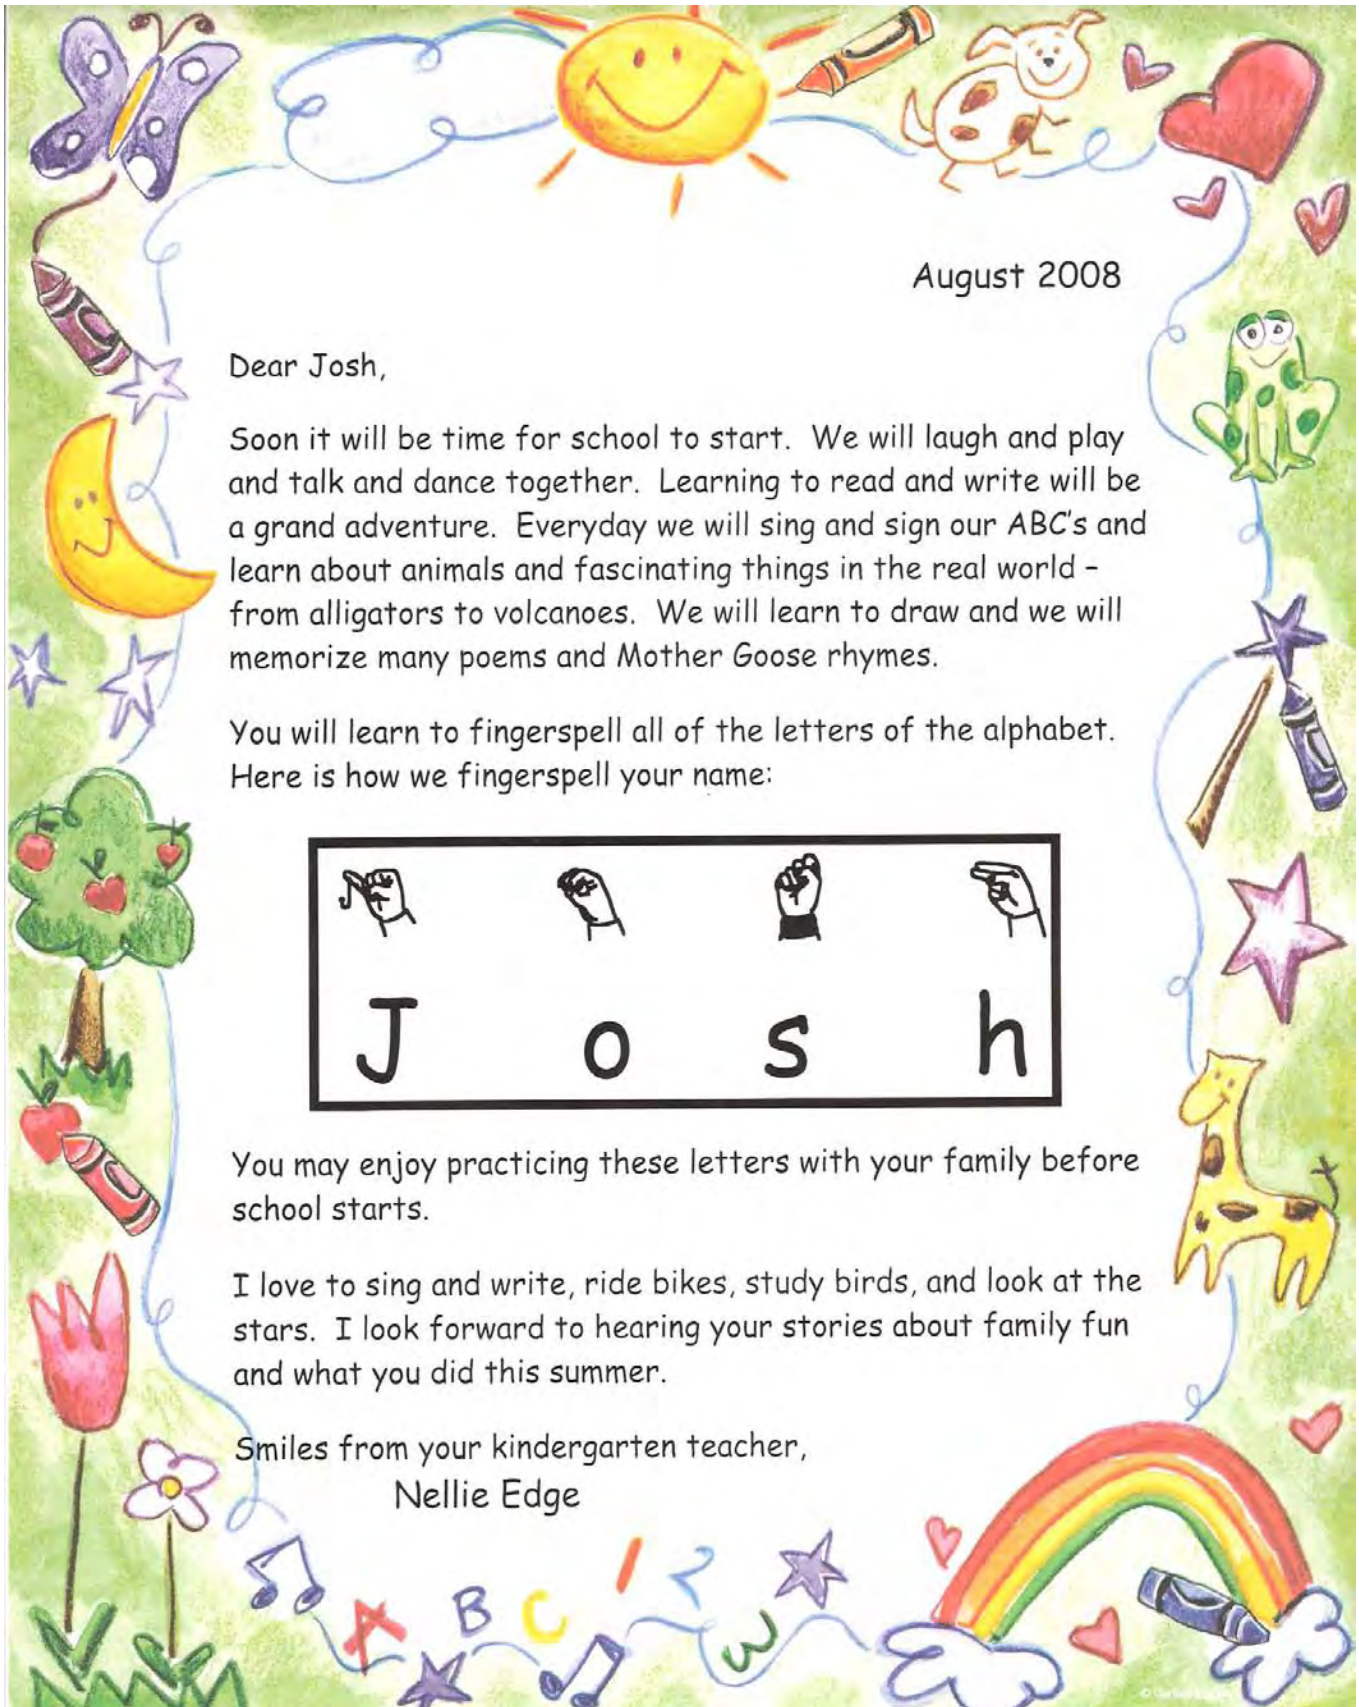 August 2008
Dear Josh,
Soon it will be time for school to start.  We will laugh and play
and talk and dance together.  Learning to read and write will be
a grand adventure.  Everyday we will sing and sign our ABC's and
learn about animals and fascinating things in the real world –
from alligators to volcanoes.  We will learn to draw and we will
memorize many poems and Mother Goose rhymes.
You will learn to fingerspell all of the letters of the alphabet.
Here is how we fingerspell your name:
J o s h
You may enjoy practicing these letters with your family before
school starts.
I love to sing and write, ride bikes, study birds, and look at the
stars.  I look forward to hearing your stories about family fun
and what you did this summer.
Smiles from your kindergarten teacher,
Nellie Edge
A B C 1 2 3